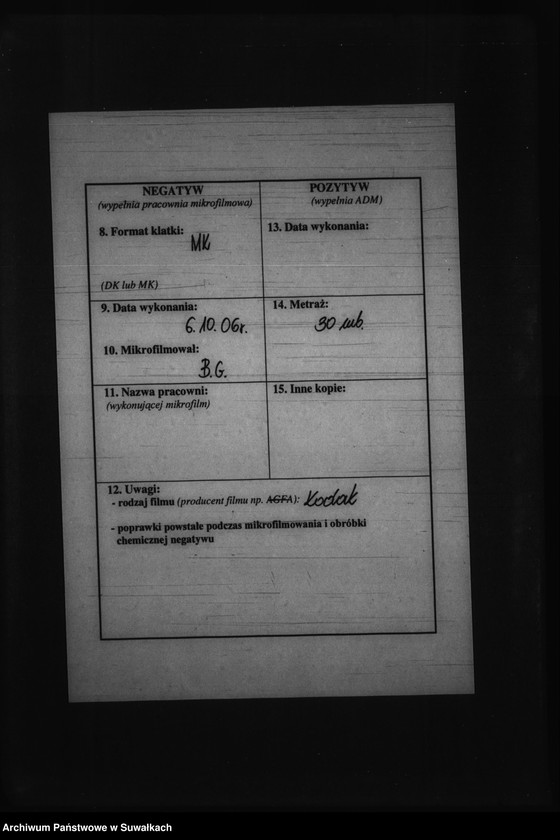 NEGATYW
(wypełnia pracownia mikrofilmowa)
8. Format klatki:
MK
(DK lub MK)
9. Data wykonania:
6.10.06r.
10. Mikrofilmował:
B.G.
11. Nazwa pracowni:
(wykonującej mikrofilm)
POZYTYW
(wypełnia ADM)
13. Data wykonania:
14. Metraż:
30 mb.
15. Inne kopie:
12. Uwagi:
- rodzaj filmu (producent filmu np. AGFA): Kodak
- poprawki powstałe podczas mikrofilmowania i obróbki
chemicznej negatywu
Archiwum Państwowe w Suwałkach